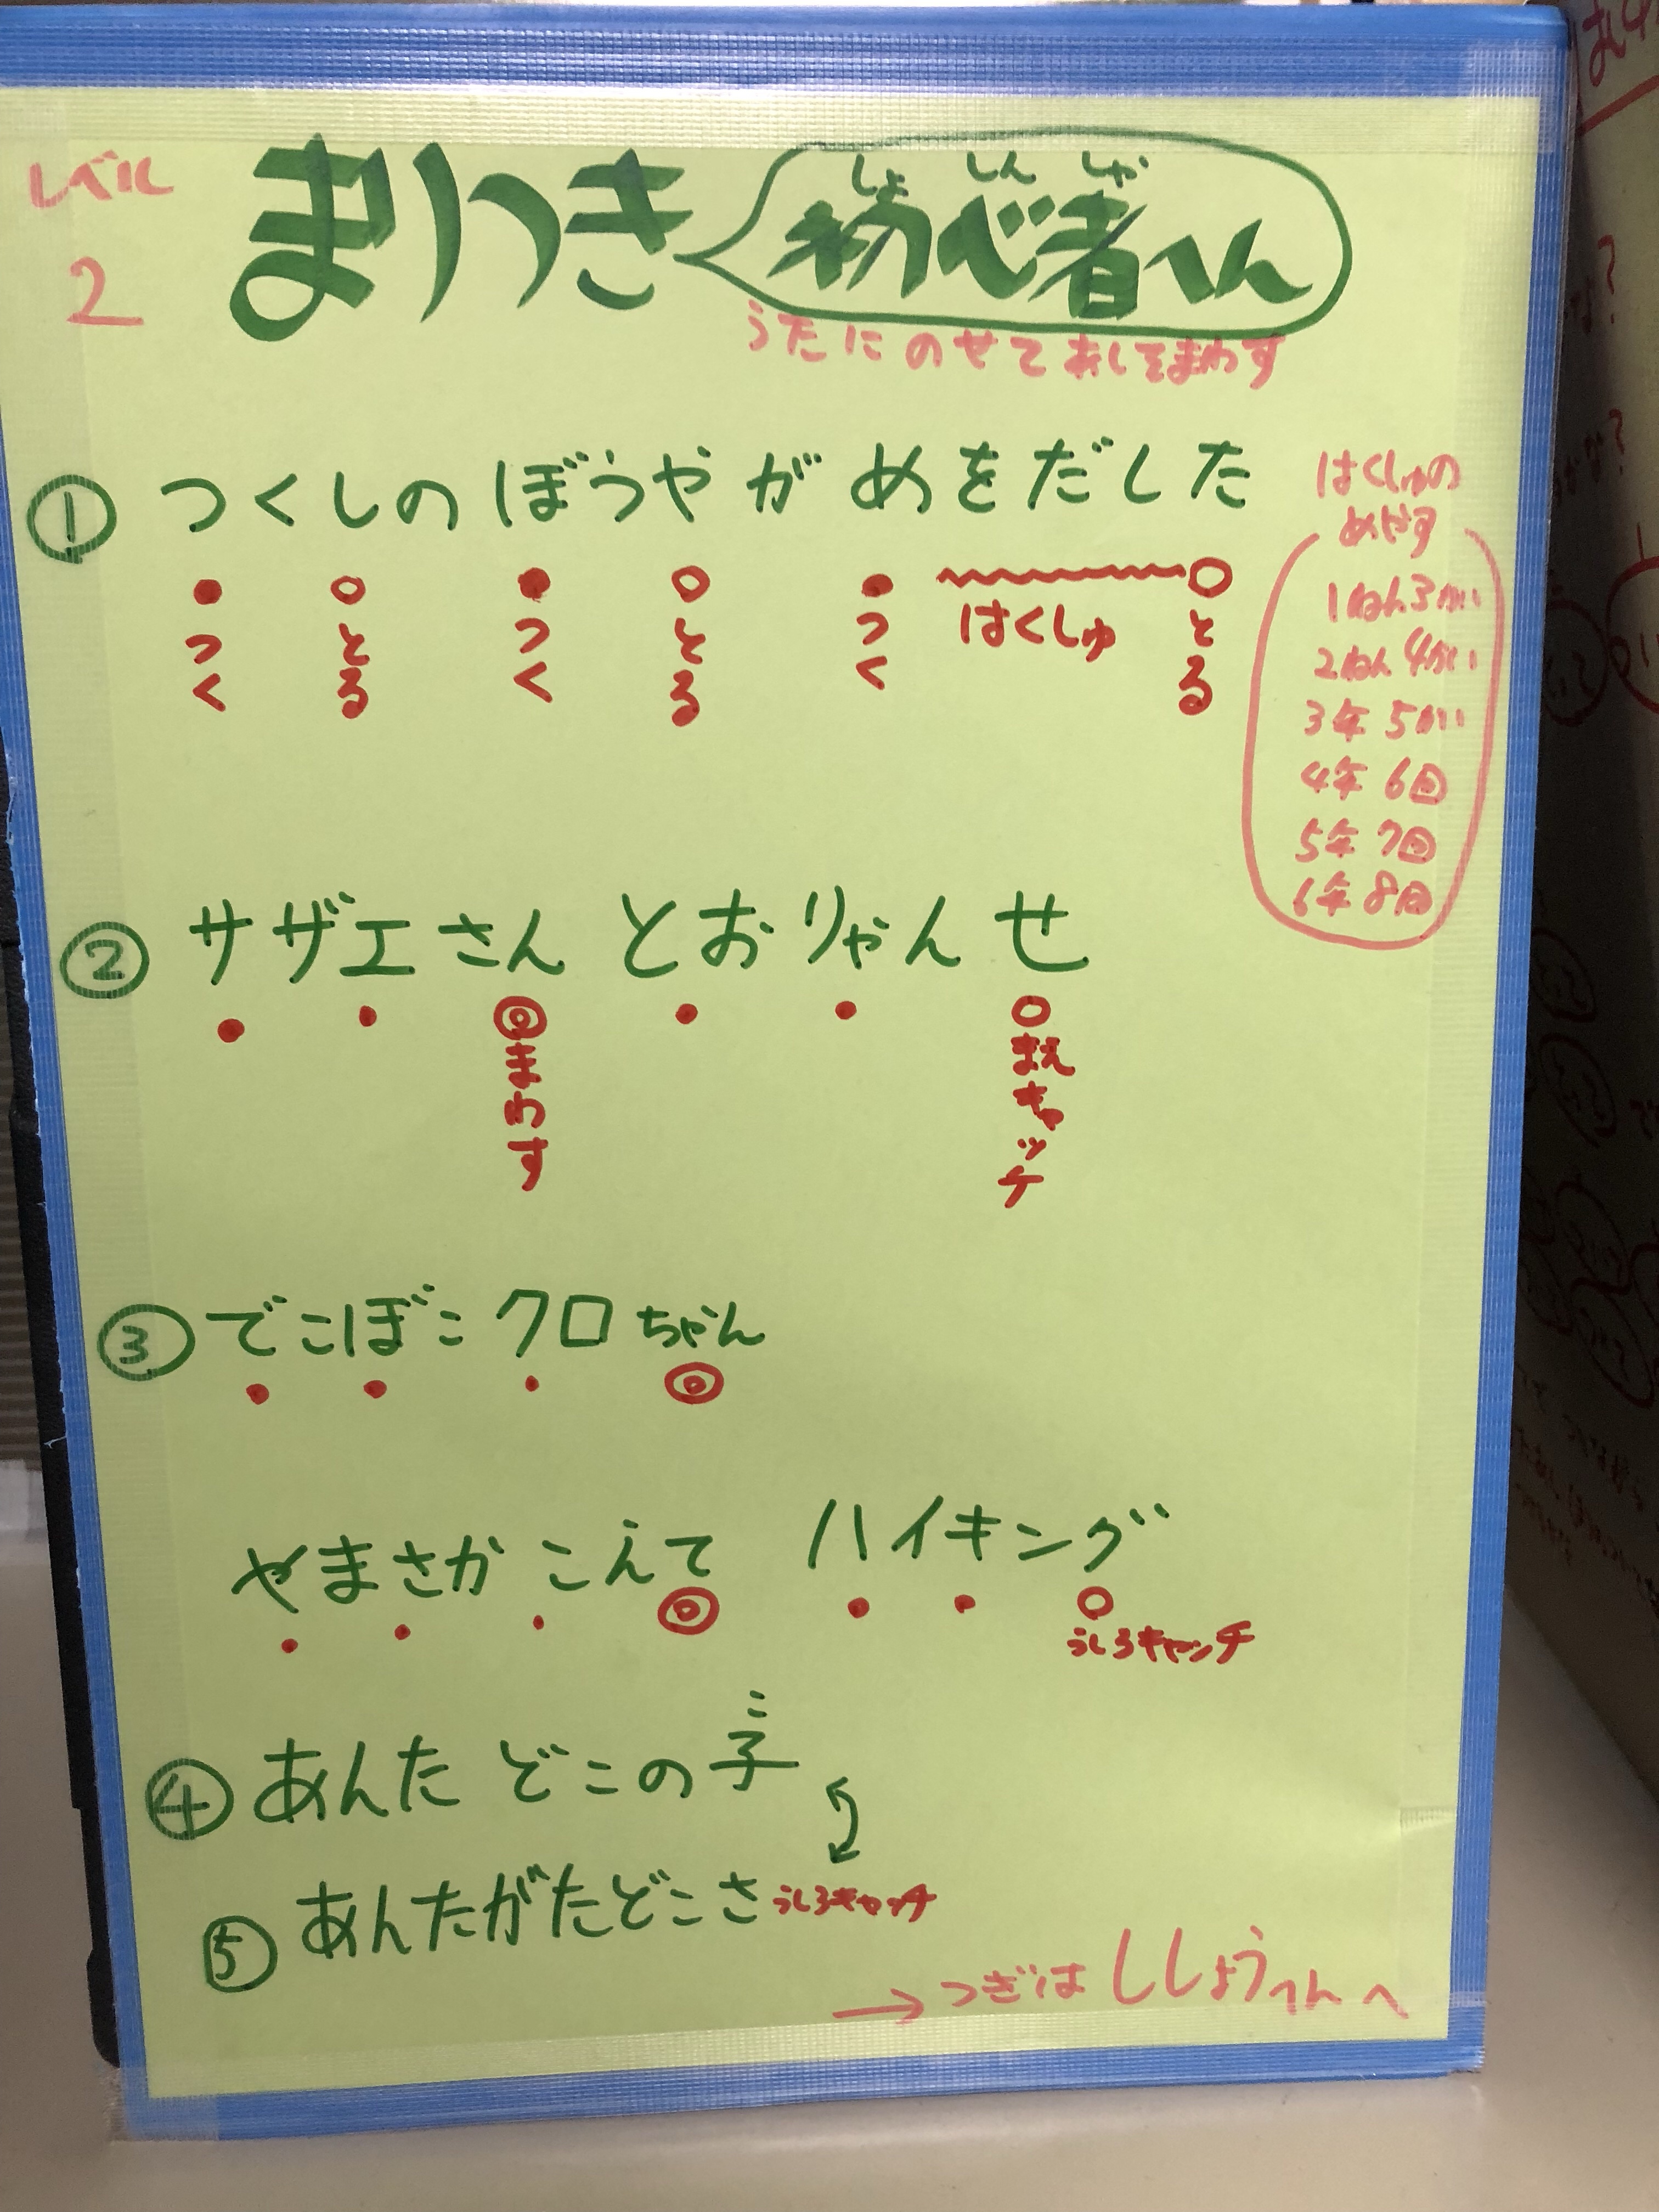 レベル
2
まりつき
しょ しん しゃ
初心者へん
うたにのせてあしをまわす
① つくしのぼうやがめをだした
つく とる つく とる つく はくしゅ とる
はくしゅの
めやす
1ねん3かい
2ねん4かい
3年 5かい
4年 6回
5年 7回
6年 8回
② サザエさん とおりゃんせ
まわす まえキャッチ
③ でこぼこクロちゃん
やまさかこえて ハイキング
うしろキャッチ
こ
④ あんた どこの子
⑤ あんたがたどこさ うしろキャッチ
→ つぎは ししょうへんへ